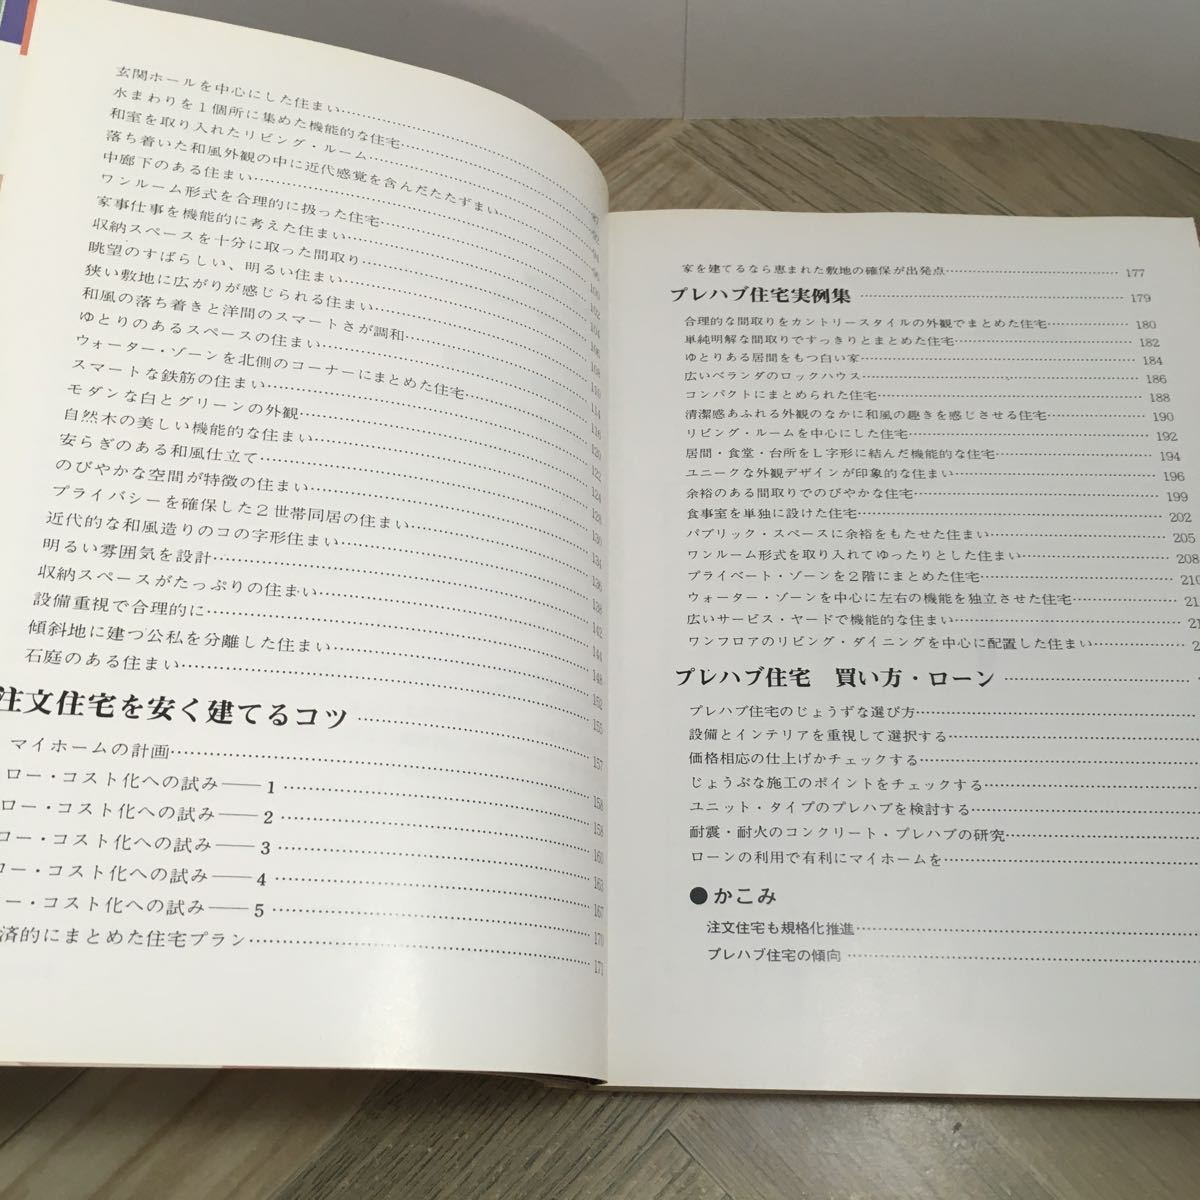 玄関ホールを中心にした住まい
水まわりを1個所に集めた機能的な住宅
和室を取り入れたリビング・ルーム
落ち着いた和風外観の中に近代感覚を含んだたたずまい
中廊下のある住まい
ワンルーム形式を合理的に扱った住宅
家事仕事を機能的に考えた住まい
収納スペースを十分に取った間取り
眺望のすばらしい、明るい住まい
狭い敷地に広がりが感じられる住まい
和風の落ち着きと洋間のスマートさが調和
ゆとりのあるスペースの住まい
ウォーター・ゾーンを北側のコーナーにまとめた住宅
スマートな鉄筋の住まい
モダンな白とグリーンの外観
自然木の美しい機能的な住まい
安らぎのある和風仕立て
のびやかな空間が特徴の住まい
プライバシーを確保した2世帯同居の住まい
近代的な和風造りのコの字形住まい
明るい雰囲気を設計
収納スペースがたっぷりの住まい
設備重視で合理的に
傾斜地に建つ公私を分離した住まい
石庭のある住まい
注文住宅を安く建てるコツ
マイホームの計画
ロー・コスト化への試み――1
ロー・コスト化への試み――2
ロー・コスト化への試み――3
ロー・コスト化への試み――4
ー・コスト化への試み――5
済的にまとめた住宅プラン
家を建てるなら恵まれた敷地の確保が出発点 177
プレハブ住宅実例集 179
合理的な間取りをカントリースタイルの外観でまとめた住宅 180
単純明解な間取りですっきりとまとめた住宅 182
ゆとりある居間をもつ白い家 184
広いベランダのロックハウス 186
コンパクトにまとめられた住宅 188
清潔感あふれる外観のなかに和風の趣きを感じさせる住宅 190
リビング・ルームを中心にした住宅 192
居間・食堂・台所をL字形に結んだ機能的な住宅 194
ユニークな外観デザインが印象的な住まい 196
余裕のある間取りでのびやかな住宅 199
食事室を単独に設けた住宅 202
パブリック・スペースに余裕をもたせた住まい 205
ワンルーム形式を取り入れてゆったりとした住まい 208
プライベート・ゾーンを2階にまとめた住宅 210
ウォーター・ゾーンを中心に左右の機能を独立させた住宅 21
広いサービス・ヤードで機能的な住まい 21
ワンフロアのリビング・ダイニングを中心に配置した住まい 2
プレハブ住宅 買い方・ローン
プレハブ住宅のじょうずな選び方
設備とインテリアを重視して選択する
価格相応の仕上げかチェックする
じょうぶな施工のポイントをチェックする
ユニット・タイプのプレハブを検討する
耐震・耐火のコンクリート・プレハブの研究
ローンの利用で有利にマイホームを
●かこみ
注文住宅も規格化推進
プレハブ住宅の傾向